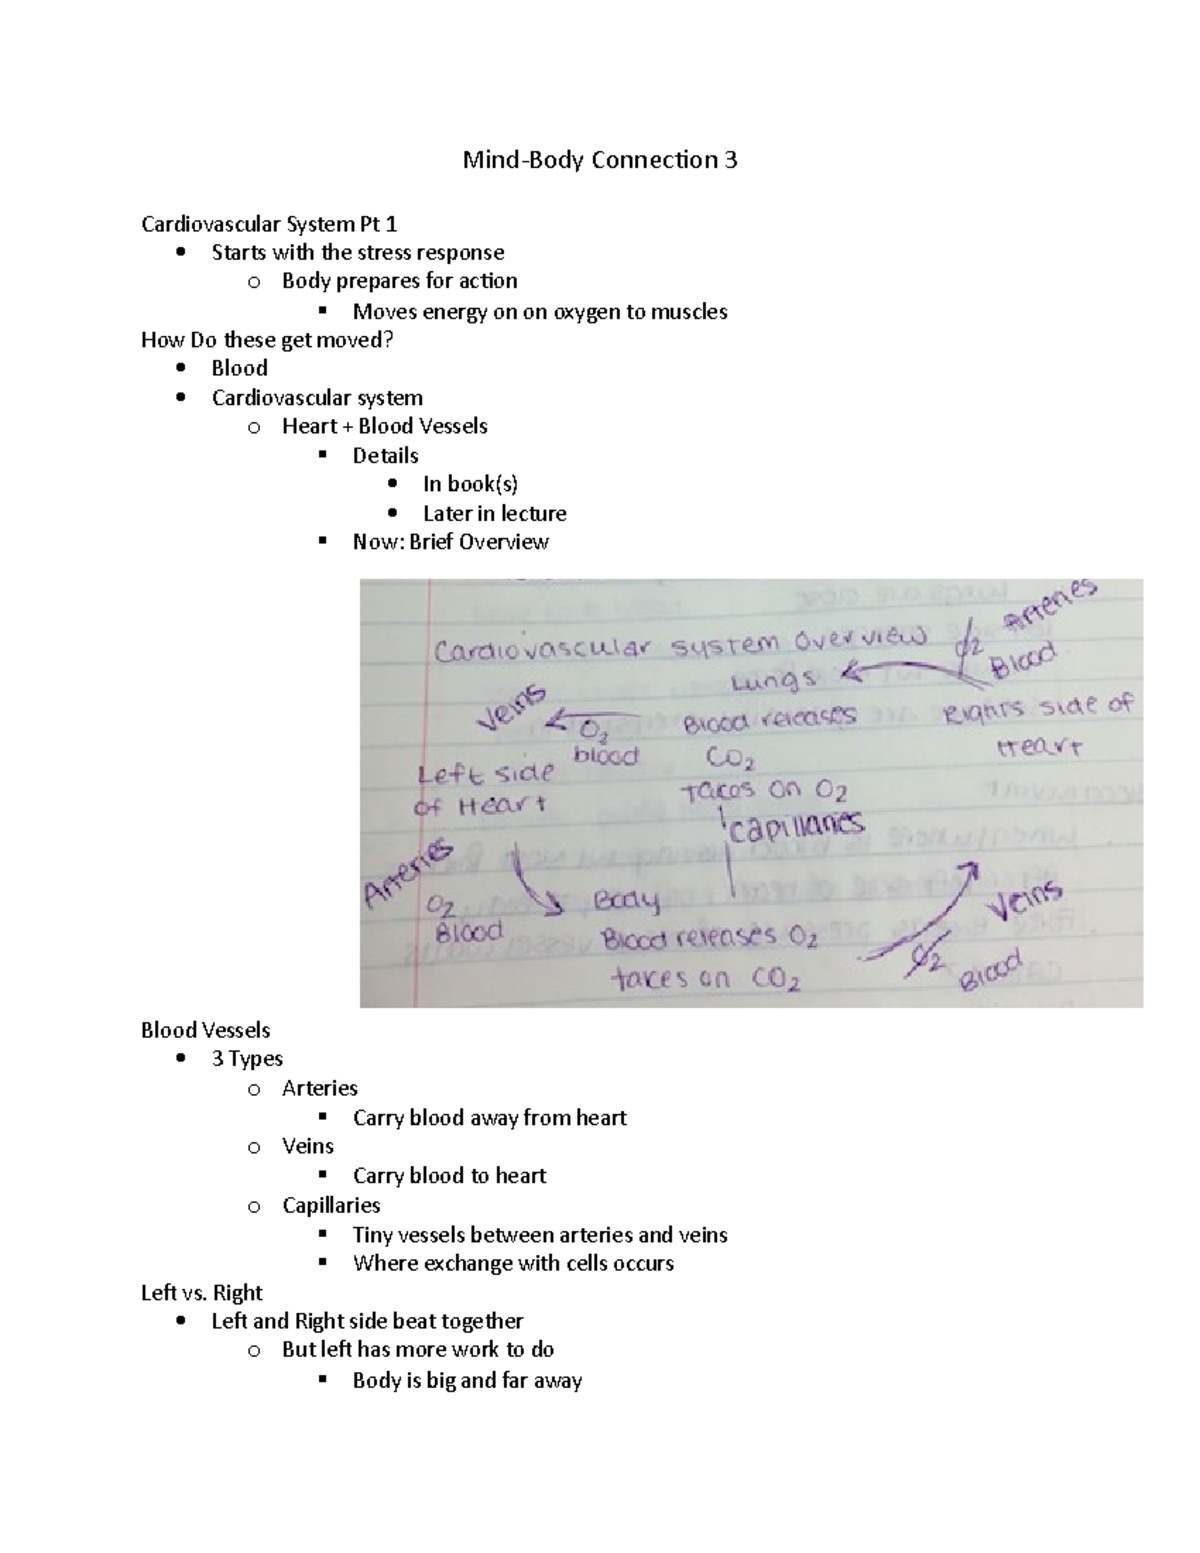 Mind-Body Connection 3
Cardiovascular System Pt 1
• Starts with the stress response
o Body prepares for action
▪ Moves energy on on oxygen to muscles
How Do these get moved?
• Blood
• Cardiovascular system
o Heart + Blood Vessels
▪ Details
• In book(s)
• Later in lecture
▪ Now: Brief Overview
Arteries
Cardiovascular system overview
O2
Blood
Lungs
Veins
O2
blood
Blood releases
CO2
takes on O2
Rights side of
Heart
Left side
of Heart
capillaries
Arteries
O2
Blood
Body
Blood releases O2
takes on CO2
Veins
O2
Blood
Blood Vessels
• 3 Types
o Arteries
▪ Carry blood away from heart
o Veins
▪ Carry blood to heart
o Capillaries
▪ Tiny vessels between arteries and veins
▪ Where exchange with cells occurs
Left vs. Right
• Left and Right side beat together
o But left has more work to do
▪ Body is big and far away